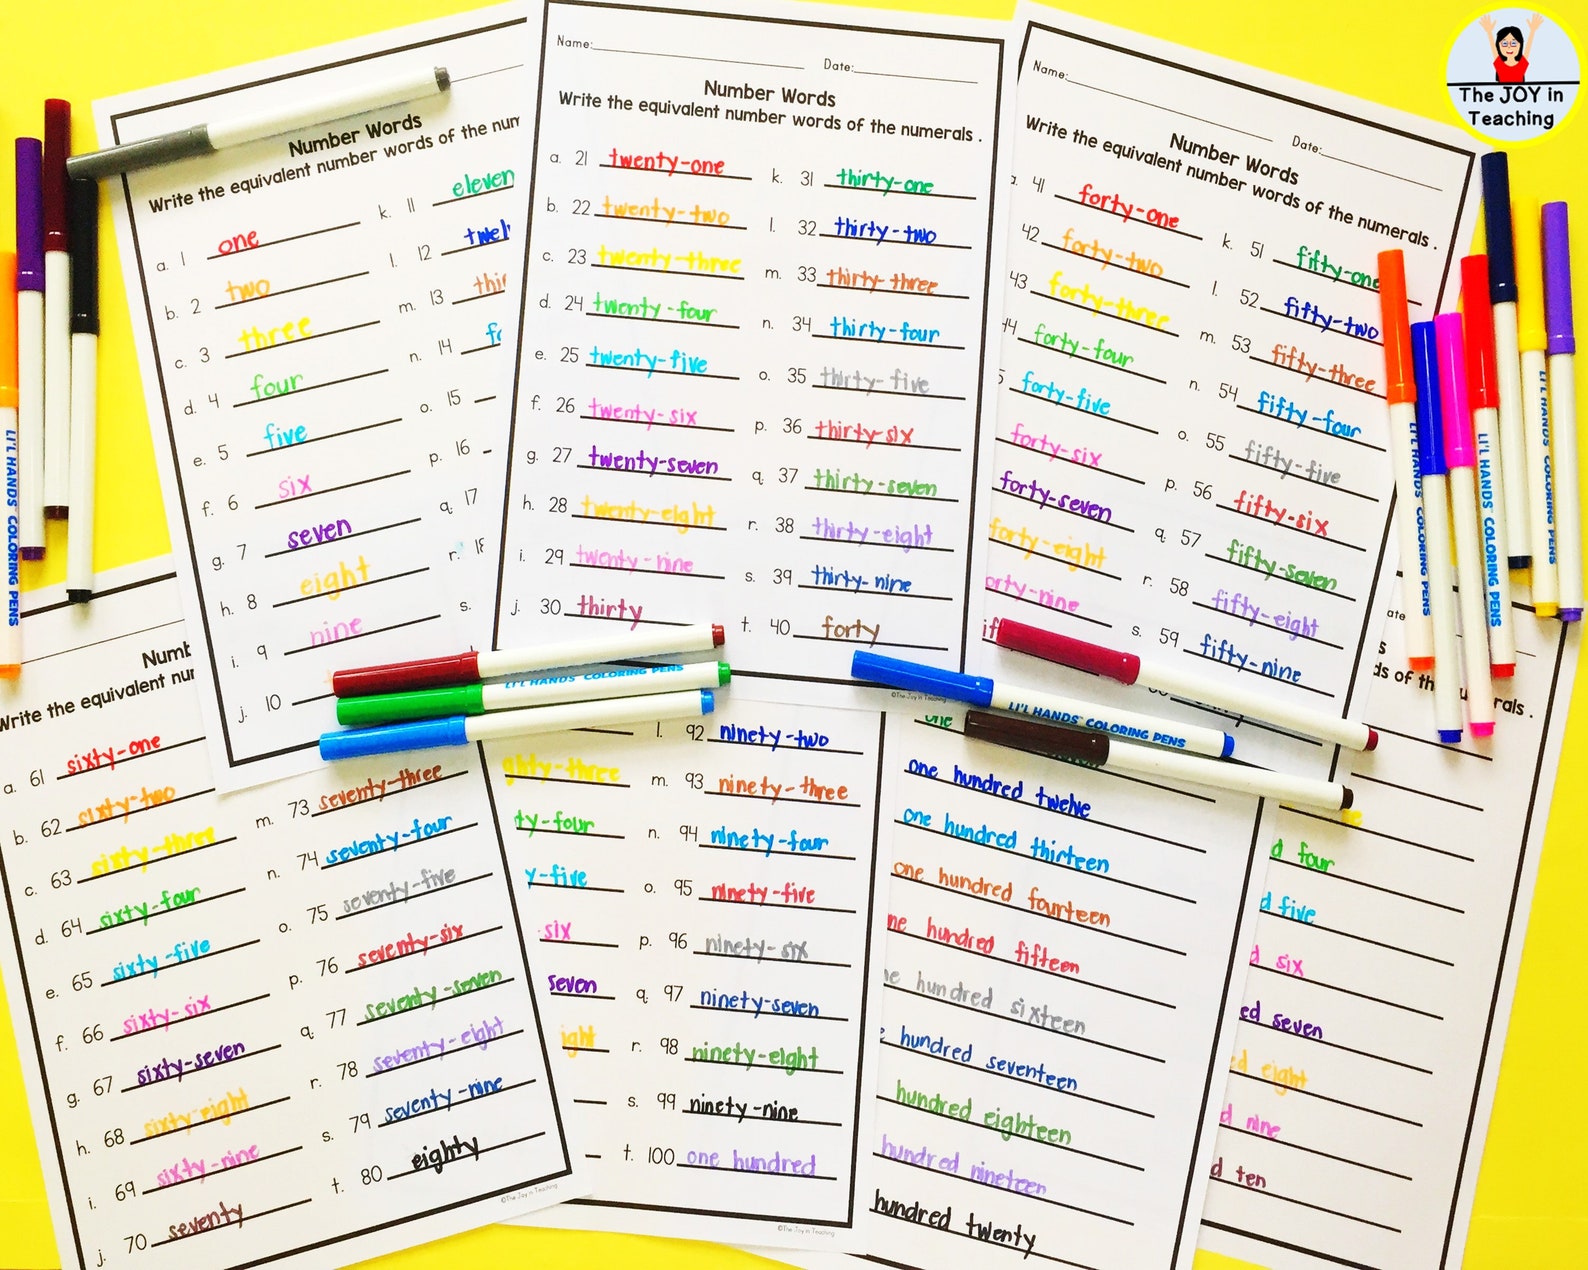 Number Words
Write the equivalent number words of the
a. 1 one
b. 2 two
c. 3 three
d. 4 four
e. 5 five
f. 6 six
g. 7 seven
h. 8 eight
i. 9 nine
j. 10
k. 11 eleven
l. 12
m. 13
n. 14
o. 15
p. 16
q. 17
r.
s.
Name: Date:
Number Words
Write the equivalent number words of the numerals .
a. 21 twenty-one
b. 22 twenty-two
c. 23 twenty-three
d. 24 twenty-four
e. 25 twenty-five
f. 26 twenty-six
g. 27 twenty-seven
h. 28 twenty-eight
i. 29 twenty-nine
j. 30 thirty
k. 31 thirty-one
l. 32 thirty-two
m. 33 thirty-three
n. 34 thirty-four
o. 35 thirty-five
p. 36 thirty-six
q. 37 thirty-seven
r. 38 thirty-eight
s. 39 thirty-nine
t. 40 forty
©The Joy in Teaching
Name: Date:
Number Words
Write the equivalent number words of the numerals .
41 forty-one
42 forty-two
43 forty-three
44 forty-four
forty-five
forty-six
forty-seven
forty-eight
k. 51 fifty-one
l. 52 fifty-two
m. 53 fifty-three
n. 54 fifty-four
o. 55 fifty-five
p. 56 fifty-six
q. 57 fifty-seven
r. 58 fifty-eight
s. 59 fifty-nine
The JOY in
Teaching
Write the equivalent
a. 61 sixty-one
b. 62 sixty-two
c. 63 sixty-three
d. 64 sixty-four
e. 65 sixty-five
f. 66 sixty-six
g. 67 sixty-seven
h. 68 sixty-eight
i. 69 sixty-nine
j. 70 seventy
m. 73 seventy-three
n. 74 seventy-four
o. 75 seventy-five
p. 76 seventy-six
q. 77 seventy-seven
r. 78 seventy-eight
s. 79 seventy-nine
t. 80 eighty
©The Joy in Teaching
six
seven
l. 92 ninety-two
m. 93 ninety-three
n. 94 ninety-four
o. 95 ninety-five
p. 96 ninety-six
q. 97 ninety-seven
r. 98 ninety-eight
s. 99 ninety-nine
t. 100 one hundred
©The Joy in Teaching
one hundred twelve
one hundred thirteen
one hundred fourteen
hundred fifteen
hundred sixteen
hundred seventeen
hundred eighteen
hundred nineteen
hundred twenty
four
five
six
seven
eight
nine
ten
LI'L HANDS COLORING PENS
LI'L HANDS COLORING PENS
LI'L HANDS COLORING PENS
LI'L HANDS COLORING PENS
LI'L HANDS COLORING PENS
LI'L HANDS COLORING PENS